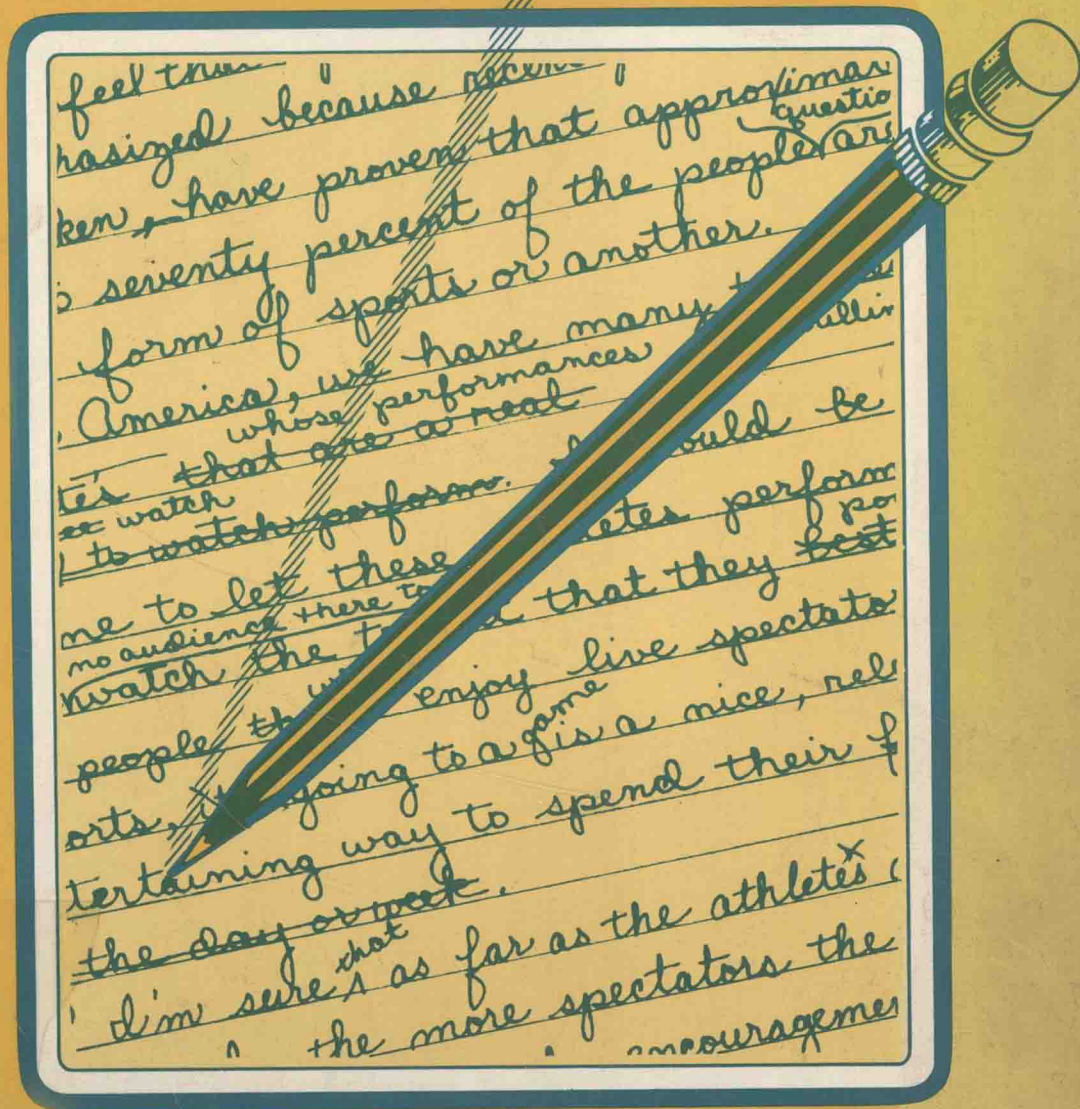 feel that
hasized because recent
ken, have proven that approximat
questio
seventy percent of the people are
form of sports or another.
America, we have many
whose performances
tes that are a real
watch
to watch perform. ould be
me to let these letes perform
no audience there to po
watch the that they best
people enjoy live spectato
game
orts, going to a is a nice, rel
tertaining way to spend their f
the day or week.
that
I'm sure as far as the athletes
the more spectators the
encouragemen